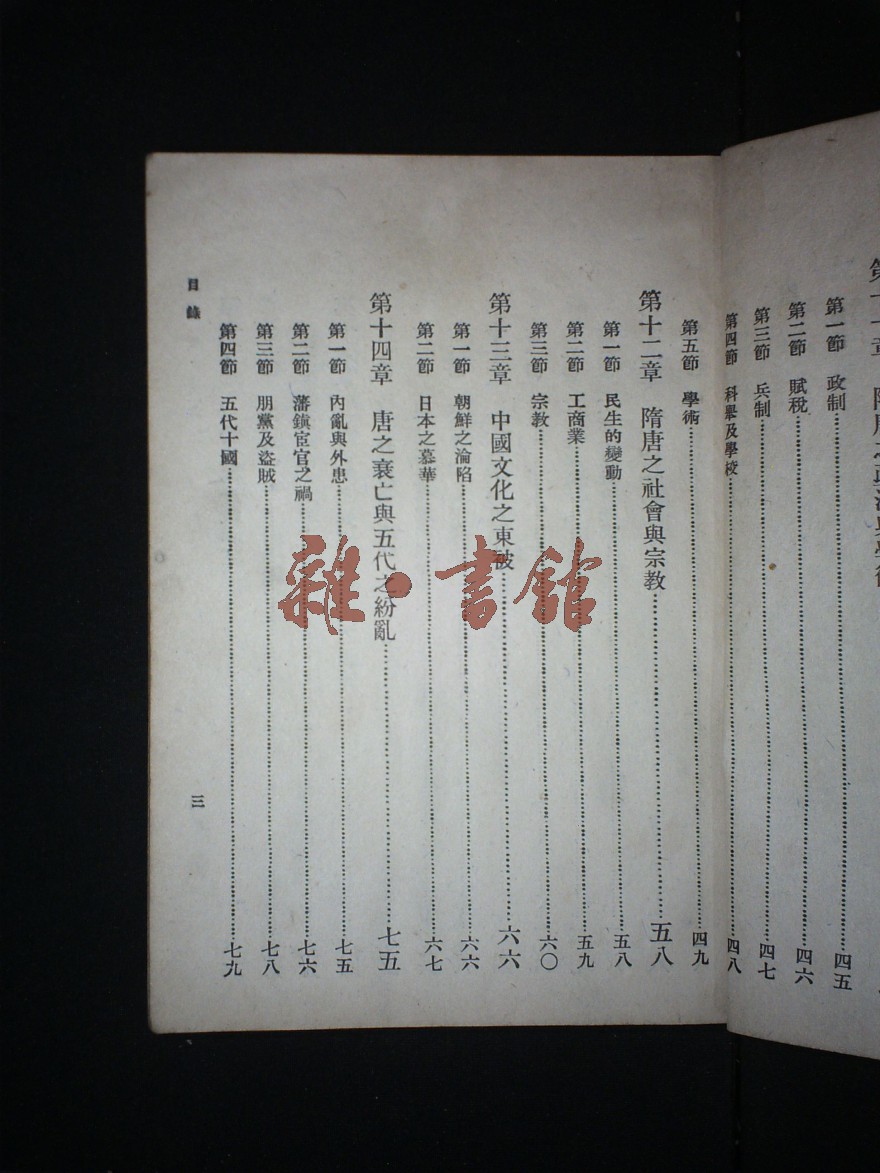 第一節 政制 四五
第二節 賦稅 四六
第三節 兵制 四七
第四節 科舉及學校 四八
第五節 學術 四九
第十二章 隋唐之社會與宗教 五八
第一節 民生的變動 五八
第二節 工商業 五九
第三節 宗教 六〇
第十三章 中國文化之東被 六六
第一節 朝鮮之淪陷 六六
第二節 日本之慕華 六七
第十四章 唐之衰亡與五代之紛亂 七五
第一節 內亂與外患 七五
第二節 藩鎮宦官之禍 七六
第三節 朋黨及盜賊 七八
第四節 五代十國 七九
目錄
三
雜·書館